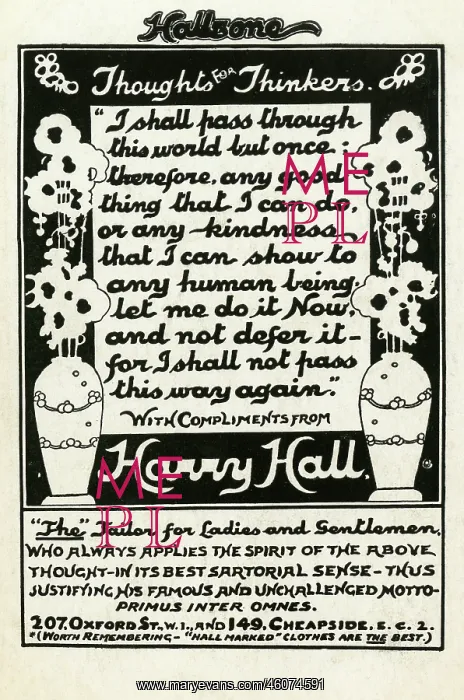 Hallzone
Thoughts FOR Thinkers.
"I shall pass through
this world but once :
therefore, any good
thing that I can do,
or any kindness
that I can show to
any human being,
let me do it Now,
and not defer it -
for I shall not pass
this way again."
WITH COMPLIMENTS FROM
Harry Hall,
"The" Tailor for Ladies and Gentlemen,
WHO ALWAYS APPLIES THE SPIRIT OF THE ABOVE
THOUGHT-IN ITS BEST SARTORIAL SENSE - THUS
JUSTIFYING HIS FAMOUS AND UNCHALLENGED MOTTO-
PRIMUS INTER OMNES.
207, OXFORD ST., W.1., AND 149, CHEAPSIDE, E.C.2.
*(WORTH REMEMBERING - "HALL MARKED" CLOTHES ARE THE BEST.)
ME
PL
ME
PL
www.maryevans.com/46074591